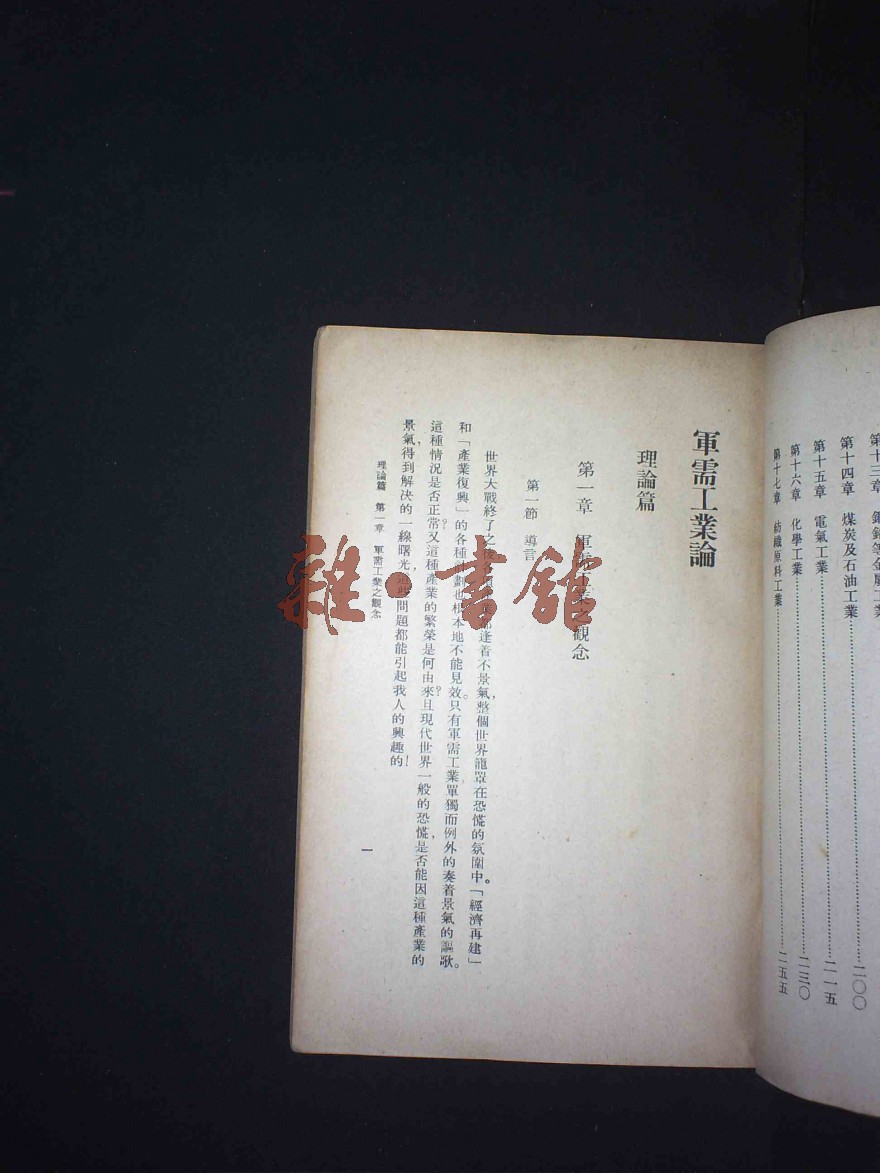 第十三章
第十四章 煤炭及石油工業 二〇〇
第十五章 電氣工業 二一五
第十六章 化學工業 二三〇
第十七章 紡織原料工業 二五五
軍需工業論
理論篇
第一章 軍需工業之觀念
第一節 導言
世界大戰終了之後各 都逢着不景氣,整個世界籠罩在恐慌的氛圍中。「經濟再建」
和「產業復興」的各種計劃也根本地不能見效。只有軍需工業單獨而例外的奏着景氣的謳歌。
這種情況是否正常?又這種產業的繁榮是何由來?且現代世界一般的恐慌,是否能因這種產業的
景氣得到解決的一線曙光,這些問題都能引起我人的興趣的!
理論篇 第一章 軍需工業之觀念
一
雜·書館